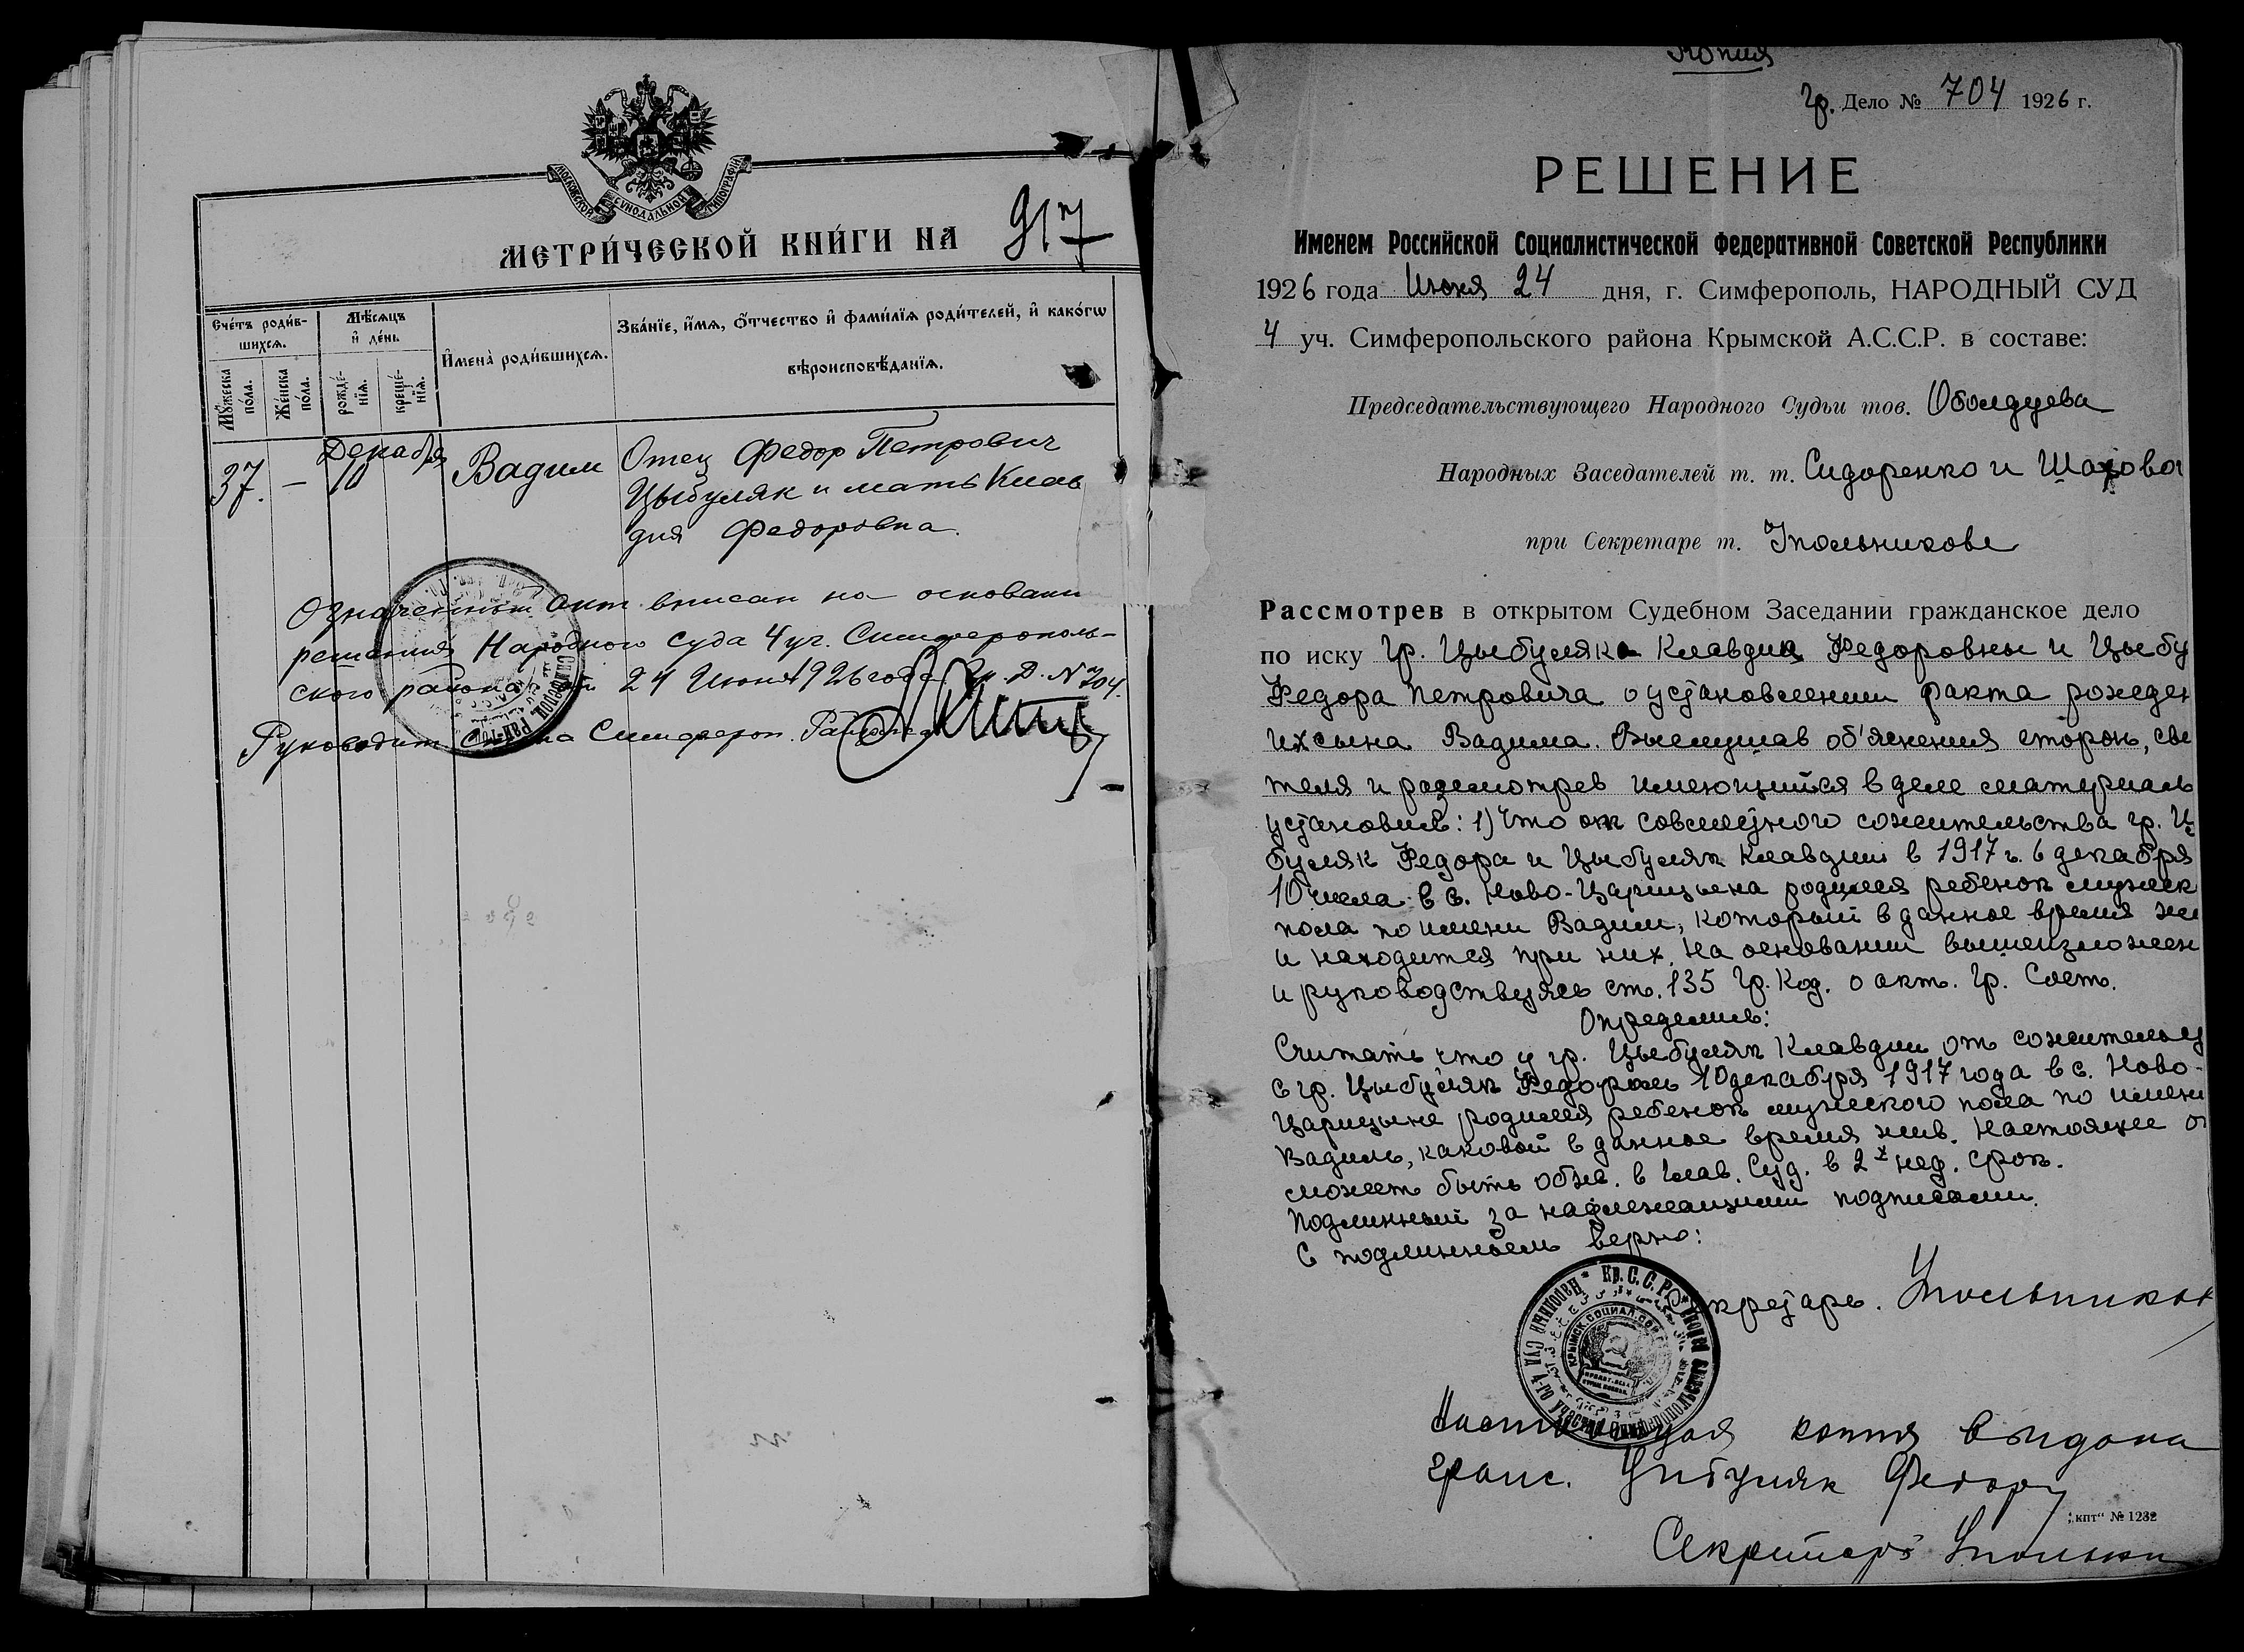 МОСКОВСКОЙ СѴНОДАЛЬНОЙ ТИПОГРАФІИ
МЕТРИ́ЧЕСКОЙ КНИ́ГИ НА 917
Сче́тъ роди́в-
шихсѧ.
Мѣ́сѧцъ
и҆ де́нь.
И҆мена̀ роди́вшихсѧ.
Зва́нїе, и҆́мѧ, ѻ҆́тчество и҆ фами́лїѧ роди́телей, и҆ како́гѡ
вѣроисповѣ́данїѧ.
Мꙋ́жеска
по́ла.
Же́нска
по́ла.
рожде́-
нїѧ.
креще́-
нїѧ.
37. — Декабря 10 Вадим Отец Федор Петрович
Цыбуляк и мать Клав
дия Федоровна.
Означенный акт вписан на основани
решения Народного суда 4 уч. Симферополь-
ского района от 24 Июня 1926 года Гр. Д. N 704.
Руководит Симфероп.
Копия
Гр. Дело № 704 1926 г.
РЕШЕНИЕ
Именем Российской Социалистической Федеративной Советской Республики
1926 года Июня 24 дня, г. Симферополь, НАРОДНЫЙ СУД
4 уч. Симферопольского района Крымской А.С.С.Р. в составе:
Председательствующего Народного Судьи тов. Оболдуева
Народных Заседателей т. т. Сидоренко и Шахова
при Секретаре т. Упольникове
Рассмотрев в открытом Судебном Заседании гражданское дело
по иску Гр. Цыбуляка Клавдия Федоровны и Цыбу
Федора Петровича о установлении факта рожден
их сына Вадима. Выслушав об'яснения сторон, сви
теля и рассмотрев имеющийся в деле материаль
установил: 1) Что от совместного сожительства гр. Цы
буляк Федора и Цыбуляк Клавдии в 1917 г. в декабря
10 числа в с. Ново-Царицына родился ребенок мужск
пола по имени Вадим, который в данное время жи
и находится при них. На основании вышеизложен
и руководствуясь ст. 135 Гр. Код. о акт. Гр. Сост.
Определил:
Считать что у гр. Цыбуляк Клавдии от сожительс
с гр. Цыбуляк Федором 10 декабря 1917 года в с. Ново-
Царицыне родился ребенок мужеского пола по имени
Вадим, каковой в данное время жив. Настоящее о
может быть обж. в Глав. Суд. в 2х нед. срок.
Подлинный за надлежащими подписами.
С подлинным верно:
Секретарь. Упольников
НАРОДНЫЙ СУД 4-го УЧАСТКА СИМФЕРОПОЛЬСКОГО РАЙОНА Кр. С. С. Р.
Настоящая копия выдана
граж. Цибуляк Федору
„кпт“ № 1232
Секретарь Упольни